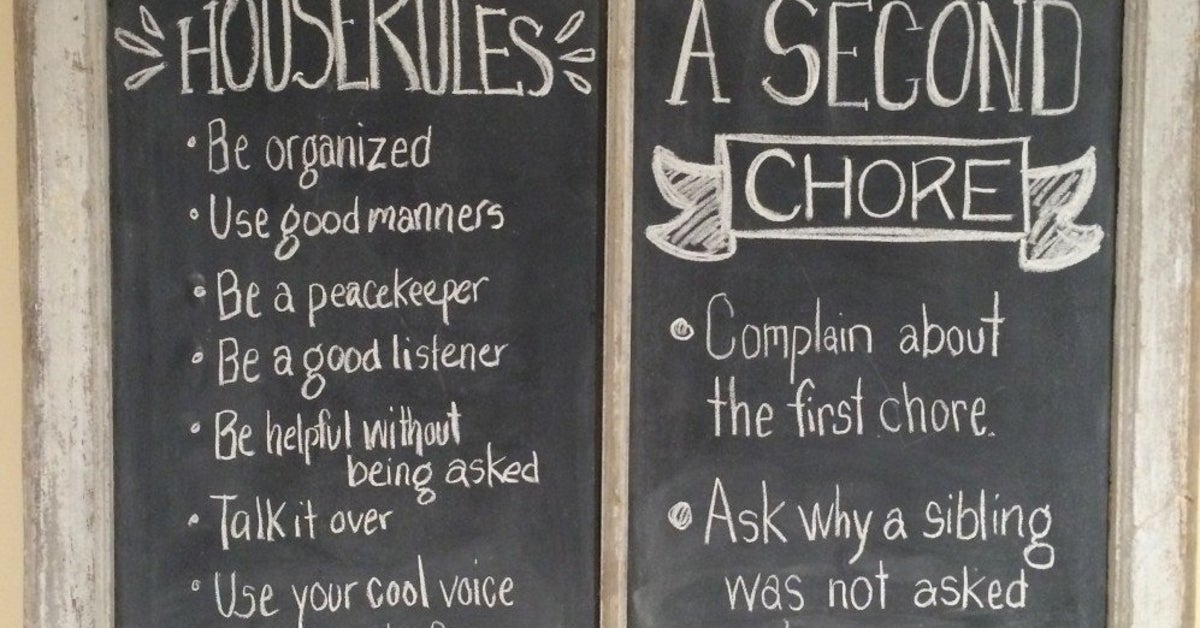 HOUSERULES
• Be organized
• Use good manners
• Be a peacekeeper
• Be a good listener
• Be helpful without
being asked
• Talk it over
• Use your cool voice
A SECOND
CHORE
• Complain about
the first chore.
• Ask why a sibling
was not asked